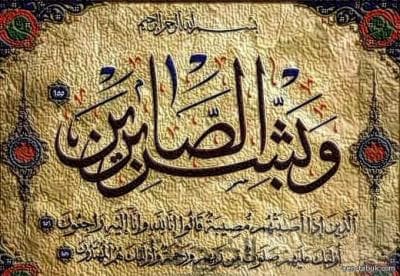 بسم الله الرحمن الرحيم
وَبَشِّرِ الصَّابِرِينَ ١٥٥
الَّذِينَ إِذَا أَصَابَتْهُم مُّصِيبَةٌ قَالُوا إِنَّا لِلَّهِ وَإِنَّا إِلَيْهِ رَاجِعُونَ
أُولَٰئِكَ عَلَيْهِمْ صَلَوَاتٌ مِّن رَّبِّهِمْ وَرَحْمَةٌ وَأُولَٰئِكَ هُمُ الْمُهْتَدُونَ